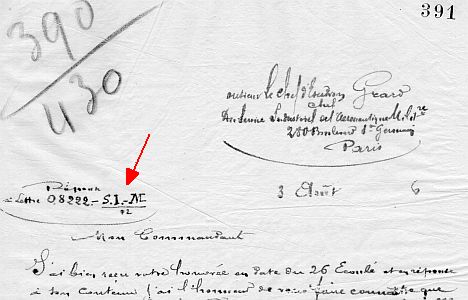 391
390
430
Monsieur le Chef d'Escadron Girard
Chef
du Service Industriel de l'Aéronautique Militre
280 Boulevard St Germain
Paris
Réponse
à Lettre 08222 - S.I. - M
3 Août 6
Mon Commandant
J'ai bien reçu votre honorée en date du 26 Écoulé et en réponse
à son contenu j'ai l'honneur de vous faire connaître que